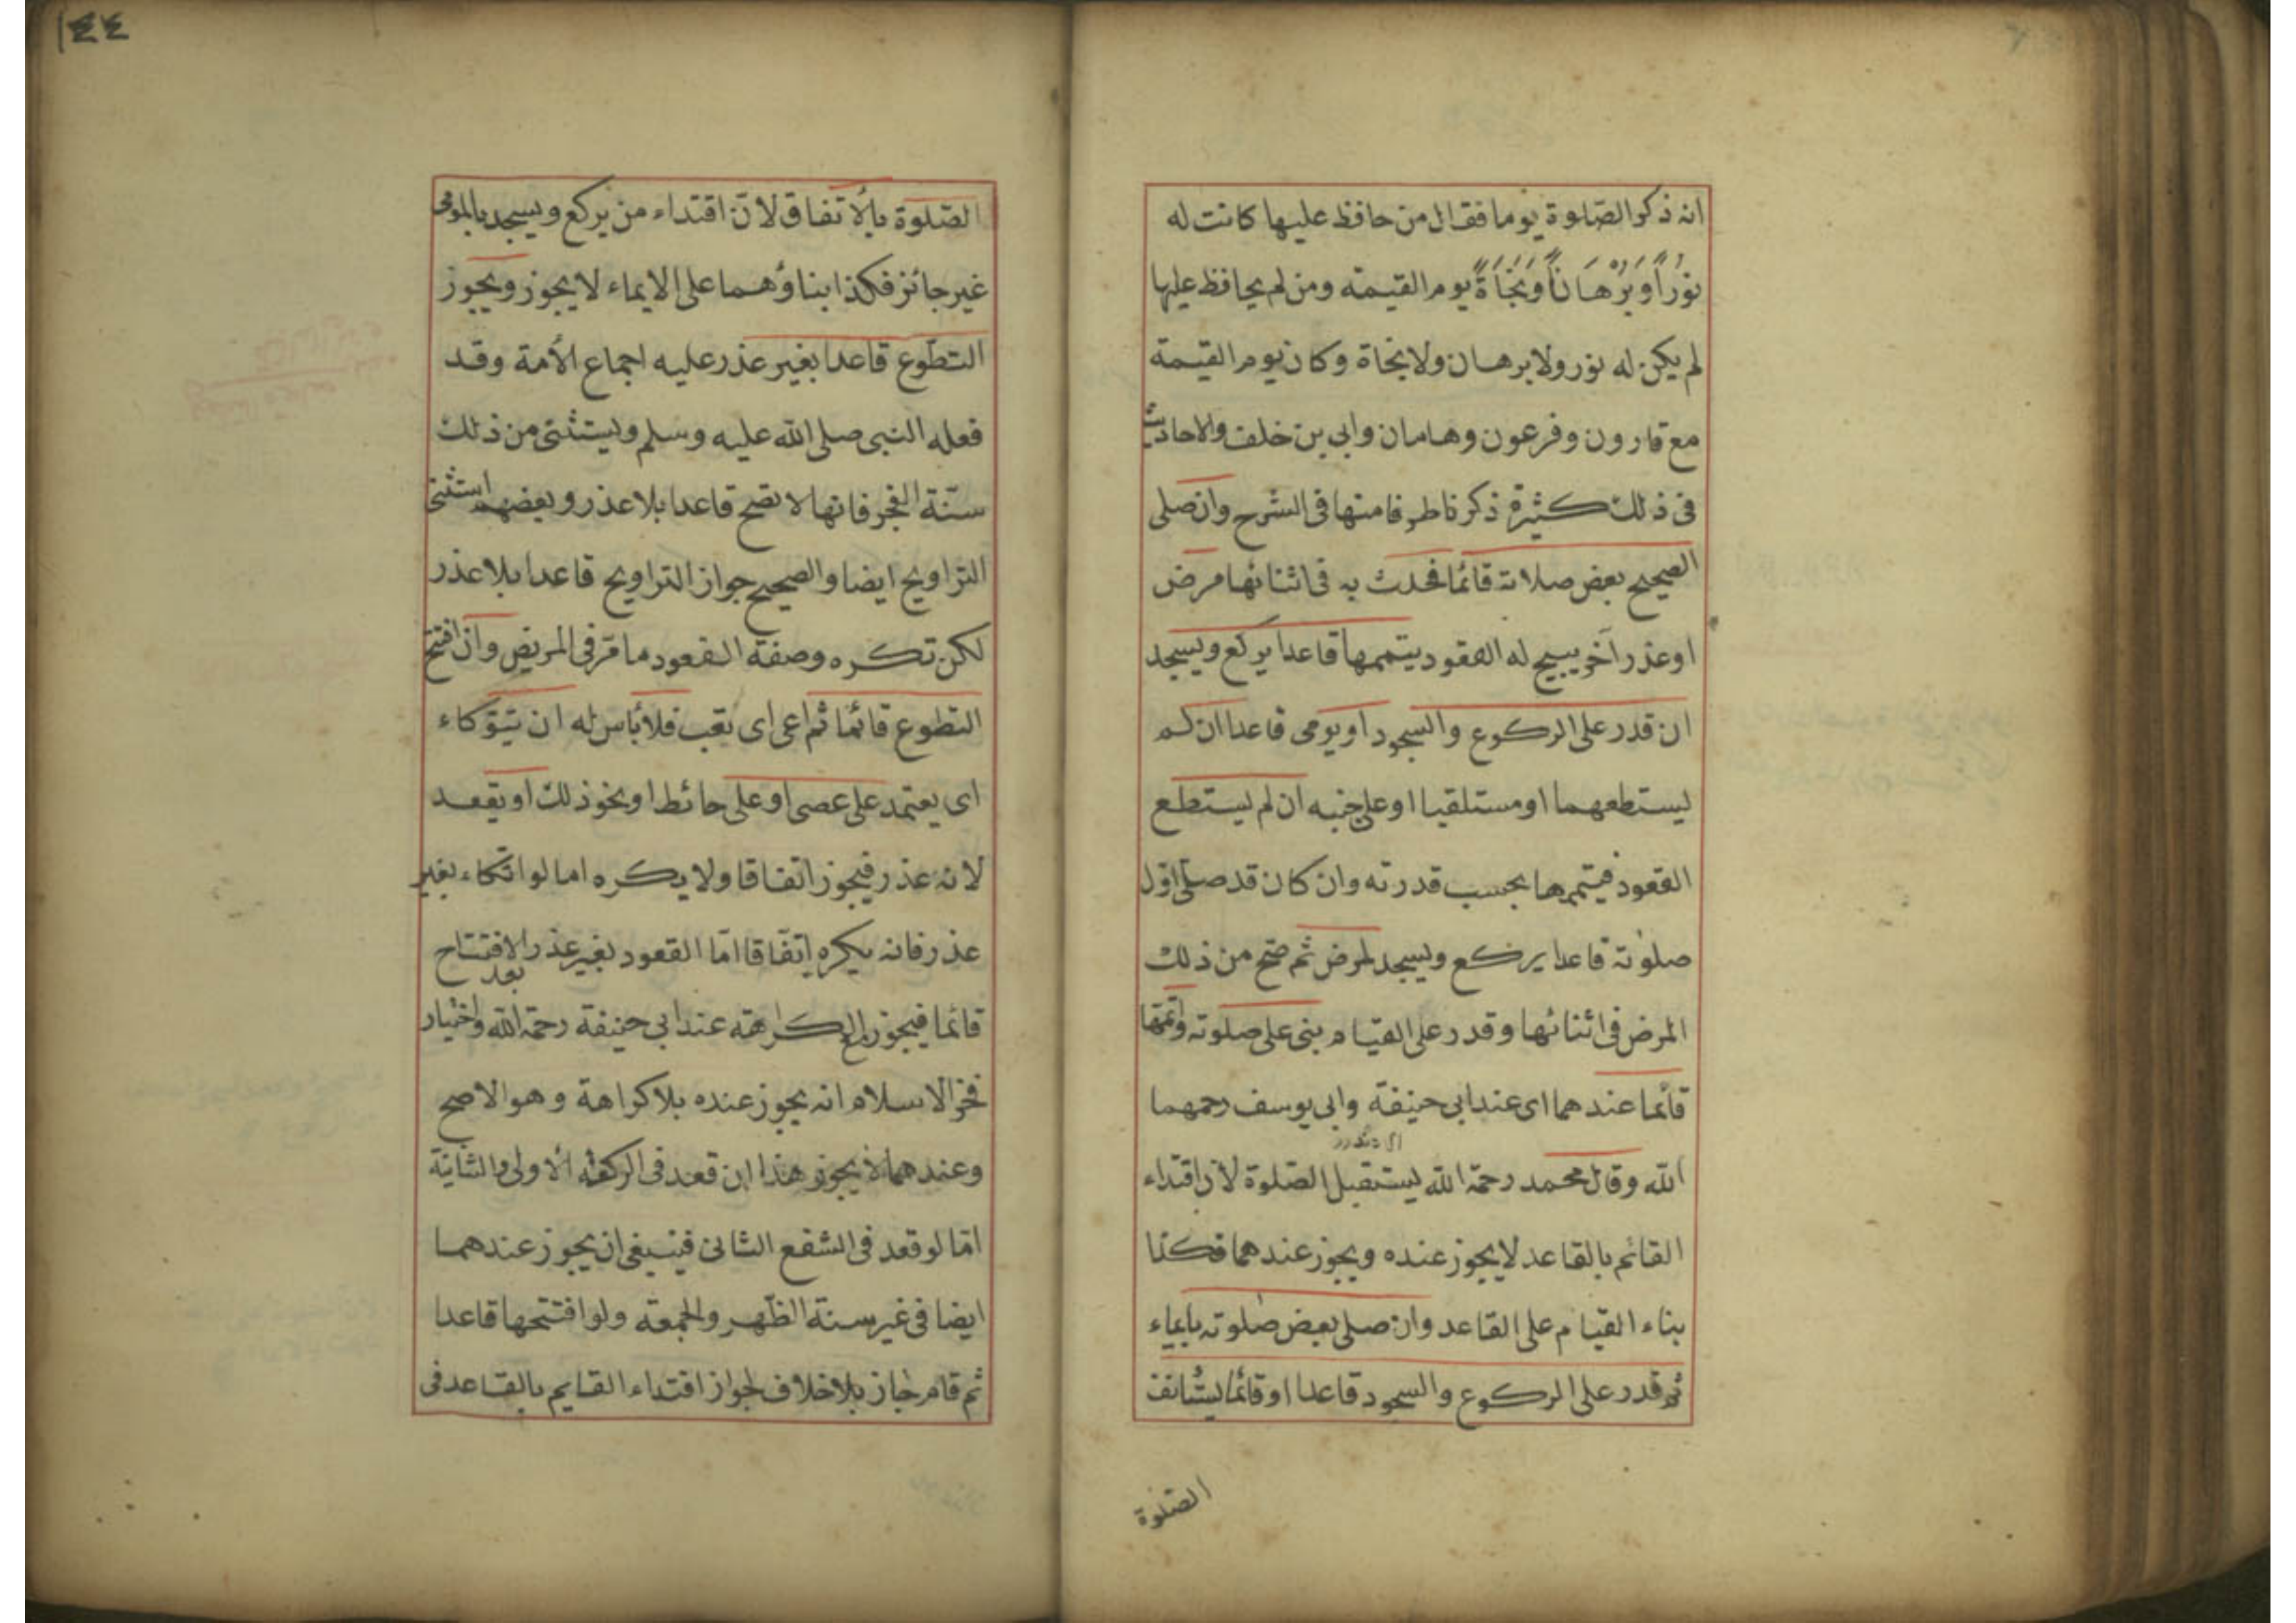 انه ذكر الصّلوة يوما فقال من حافظ عليها كانت له
نُوْراً وَبُرْهَاناً وَنَجَاةً يوم القيمة ومن لم يحافظ عليها
لم يكن له نور ولا برهان ولا نجاة وكان يوم القيمة
مع قارون وفرعون وهامان وابي بن خلف والاحاديث
فى ذلك كثيرة ذكرنا طرفا منها فى الشرح وان صلى
الصحيح بعض صلاته قائما فحدث به فى اثنائها مرض
او عذر آخر يبيح له القعود يتممها قاعدا يركع ويسجد
ان قدر على الركوع والسجود او يومى قاعدا ان لم
يستطعهما او مستلقيا او على جنبه ان لم يستطع
القعود فيتمها بحسب قدرته وان كان قد صلّى اوّل
صلوته قاعدا يركع ويسجد لمرض ثم صّح من ذلك
المرض فى اثنائها وقدر على القيام بنى على صلوته واتمّها
قائما عندهما اى عند ابى حنيفة وابى يوسف رحمهما
الله وقال محمد رحمة الله يستقبل الصّلوة لانّ اقتداء
القائم بالقاعد لا يجوز عنده ويجوز عندهما فكذا
بناء القيام على القاعد وان صلى بعض صلوته بايماء
ثم قدر على الركوع والسجود قاعدا او قائما يستأنف
الصّلوة
١٤٤
الصّلوة بالاتفاق لانّ اقتداء من يركع ويسجد بالمومى
غير جائز فكذا بناؤهما على الايماء لا يجوز ويجوز
التطّوع قاعدا بغير عذر عليه اجماع الأمة وقد
فعله النبى صلى الله عليه وسلم ويستثنى من ذلك
سنّة الفجر فانها لا تصح قاعدا بلا عذر وبعضهم استثنى
التراويح ايضا والصحيح جواز التراويح قاعدا بلا عذر
لكن تكره وصفة القعود ما مّر فى المريض وان افتتح
التطوع قائما ثم اعى اى تعب فلا بأس له ان يتوكاء
اى يعتمد على عصى او على حائط او نحو ذلك او يقعد
لانه عذر فيجوز اتفاقا ولا يكره اما لو اتكاء بغير
عذر فانه يكره اتفّاقا امّا القعود بغير عذر بعد الافتتاح
قائما فيجوز مع الكراهة عند ابى حنيفة رحمة الله واختيار
فخر الاسلام انه يجوز عنده بلا كراهة وهو الاصح
وعندهما لا يجوز هذا ان قعد فى الركعة الاولى والثانية
امّا لو قعد فى الشفع الثانى فينبغى ان يجوز عندهما
ايضا فى غير سنة الظّهر والجمعة ولو افتتحها قاعدا
ثم قام جاز بلا خلاف لجواز اقتداء القايم بالقاعد فى